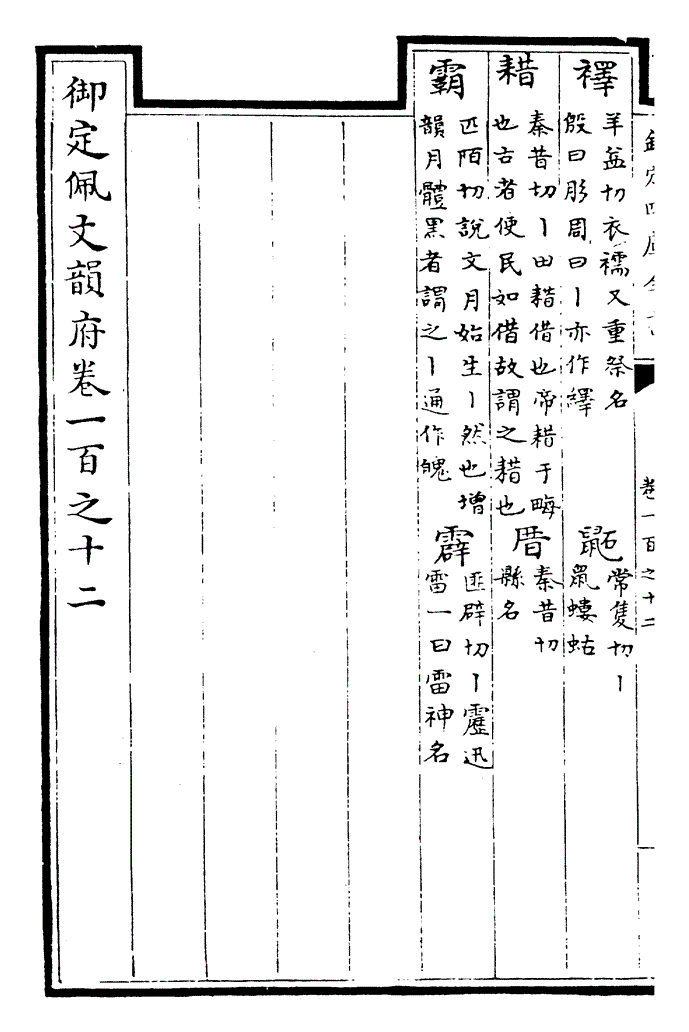 欽定四庫全書
卷一百之十二
襗
羊益切衣襦又重祭名
殷曰肜周曰丨亦作繹
鼫
常隻切丨
鼠螻蛄
耤
秦昔切丨田耤借也帝耤千畮
也古者使民如借故謂之耤也
厝
秦昔切
縣名
霸
匹陌切說文月始生丨然也增
韻月體黑者謂之丨通作魄
霹
匹辟切丨靂迅
雷一曰雷神名
御定佩文韻府卷一百之十二